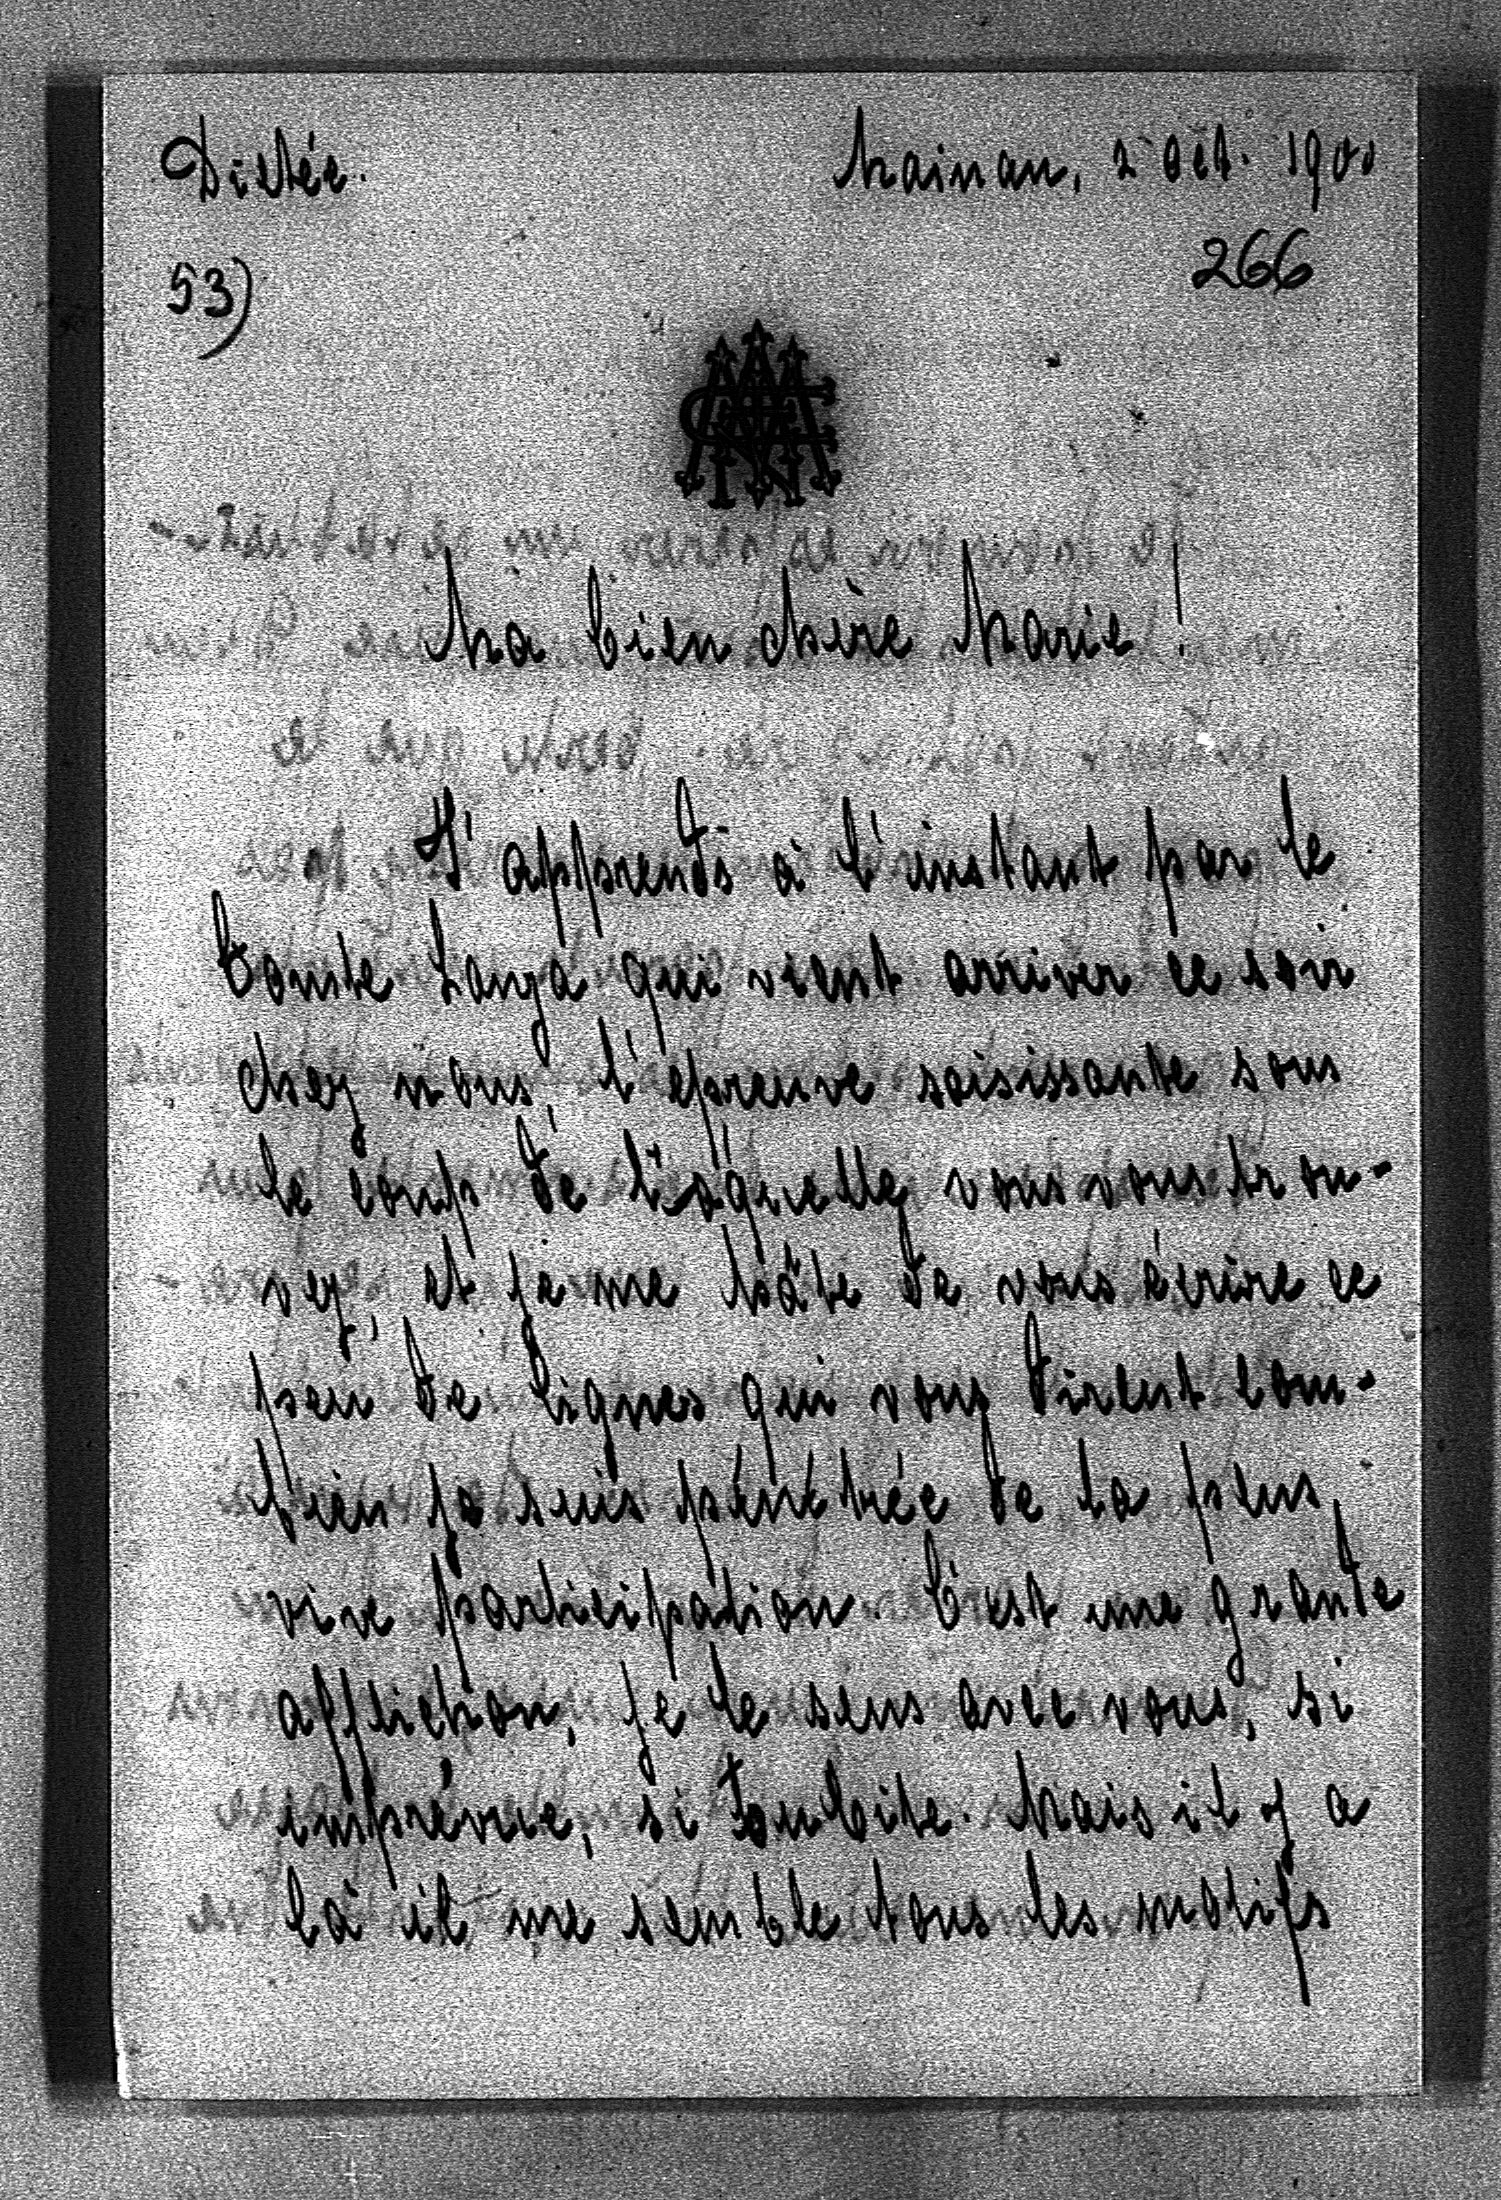 Dictée.
Mainau, 2 Oct. 1900
53)
266
Ma bien chère Marie!
J'apprends à l'instant par le
Comte Lanza qui vient arriver ce soir
chez nous, l'épreuve saisissante sous
le coup de laquelle vous vous trou-
vez, et je me hâte de vous écrire ce
peu de lignes qui vous dirent com-
bien je suis pénétrée de la plus
vive participation. C'est une grande
affliction, je le sens avec vous, si
imprévue, si subite. Mais il y a
là il me semble tous les motifs